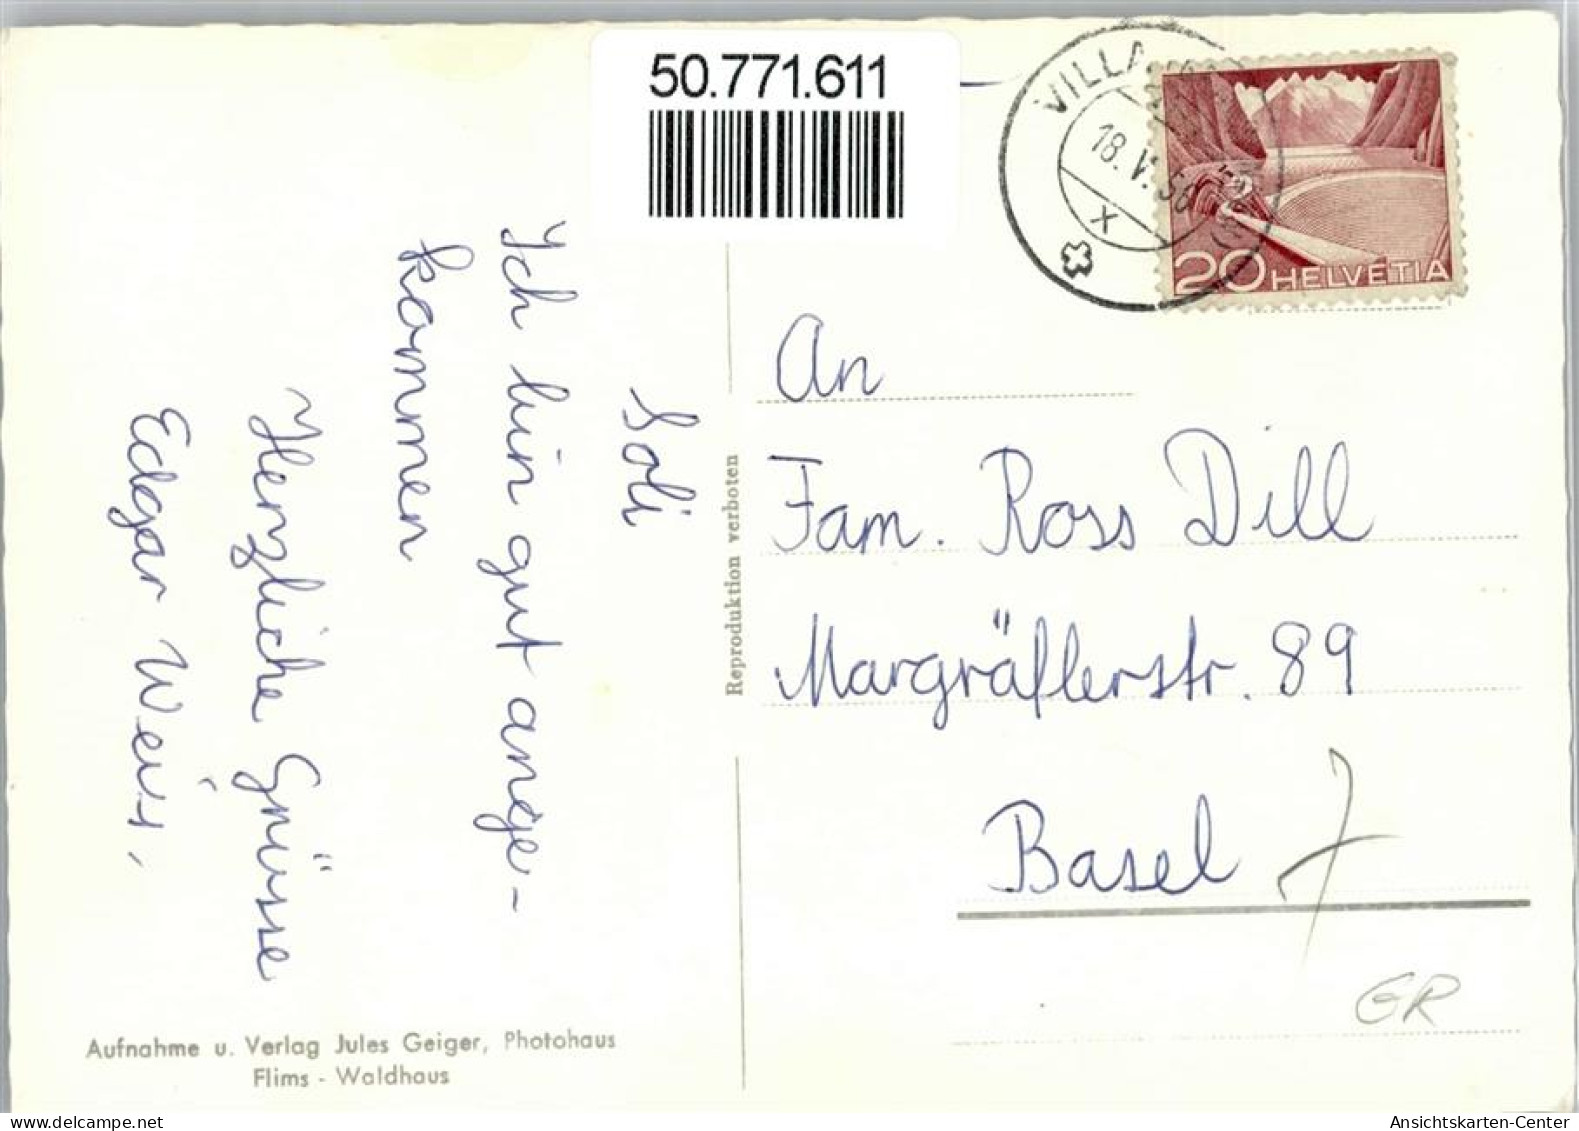 50.771.611
VILLA
18.V.56
X
20 HELVETIA
Soli
Ich bin gut ange-
kommen
Herzliche Grüsse
Edgar Weiss,
Reproduktion verboten
An
Fam. Ross Dill
Margräflerstr. 89
Basel
GR
Aufnahme u. Verlag Jules Geiger, Photohaus
Flims - Waldhaus
Ansichtskarten-Center